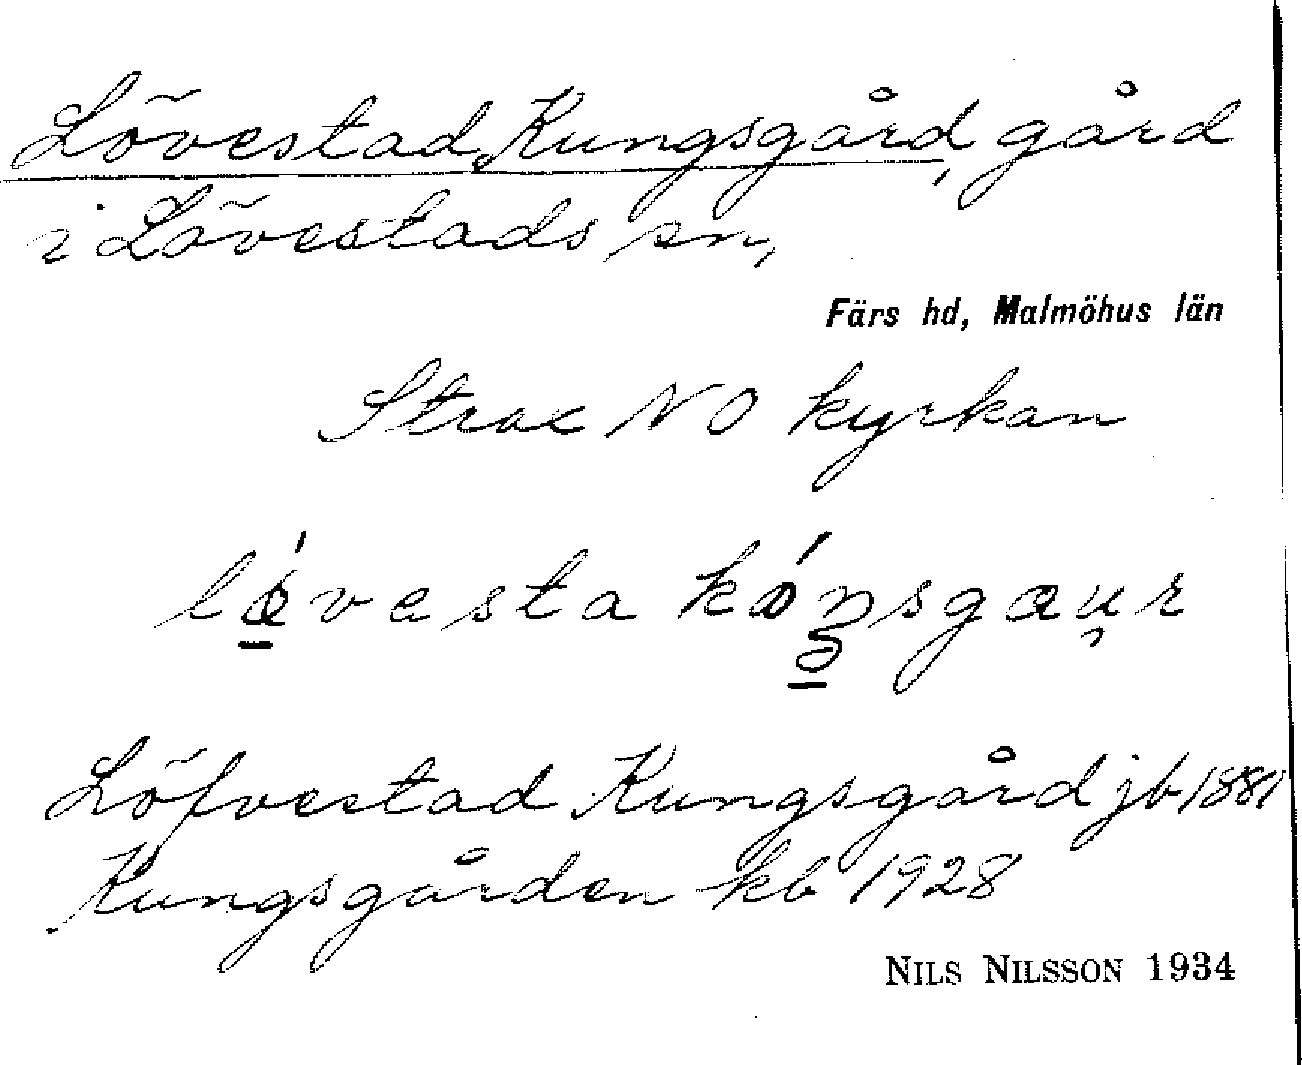 Lövestad, Kungsgård, gård
i Lövestads sn,
Färs hd, Malmöhus län
Strax NO kyrkan
lǿvesta kóŋsgæu̯r
Löfvestad Kungsgård jb 1881
Kungsgården kb 1928
NILS NILSSON 1934